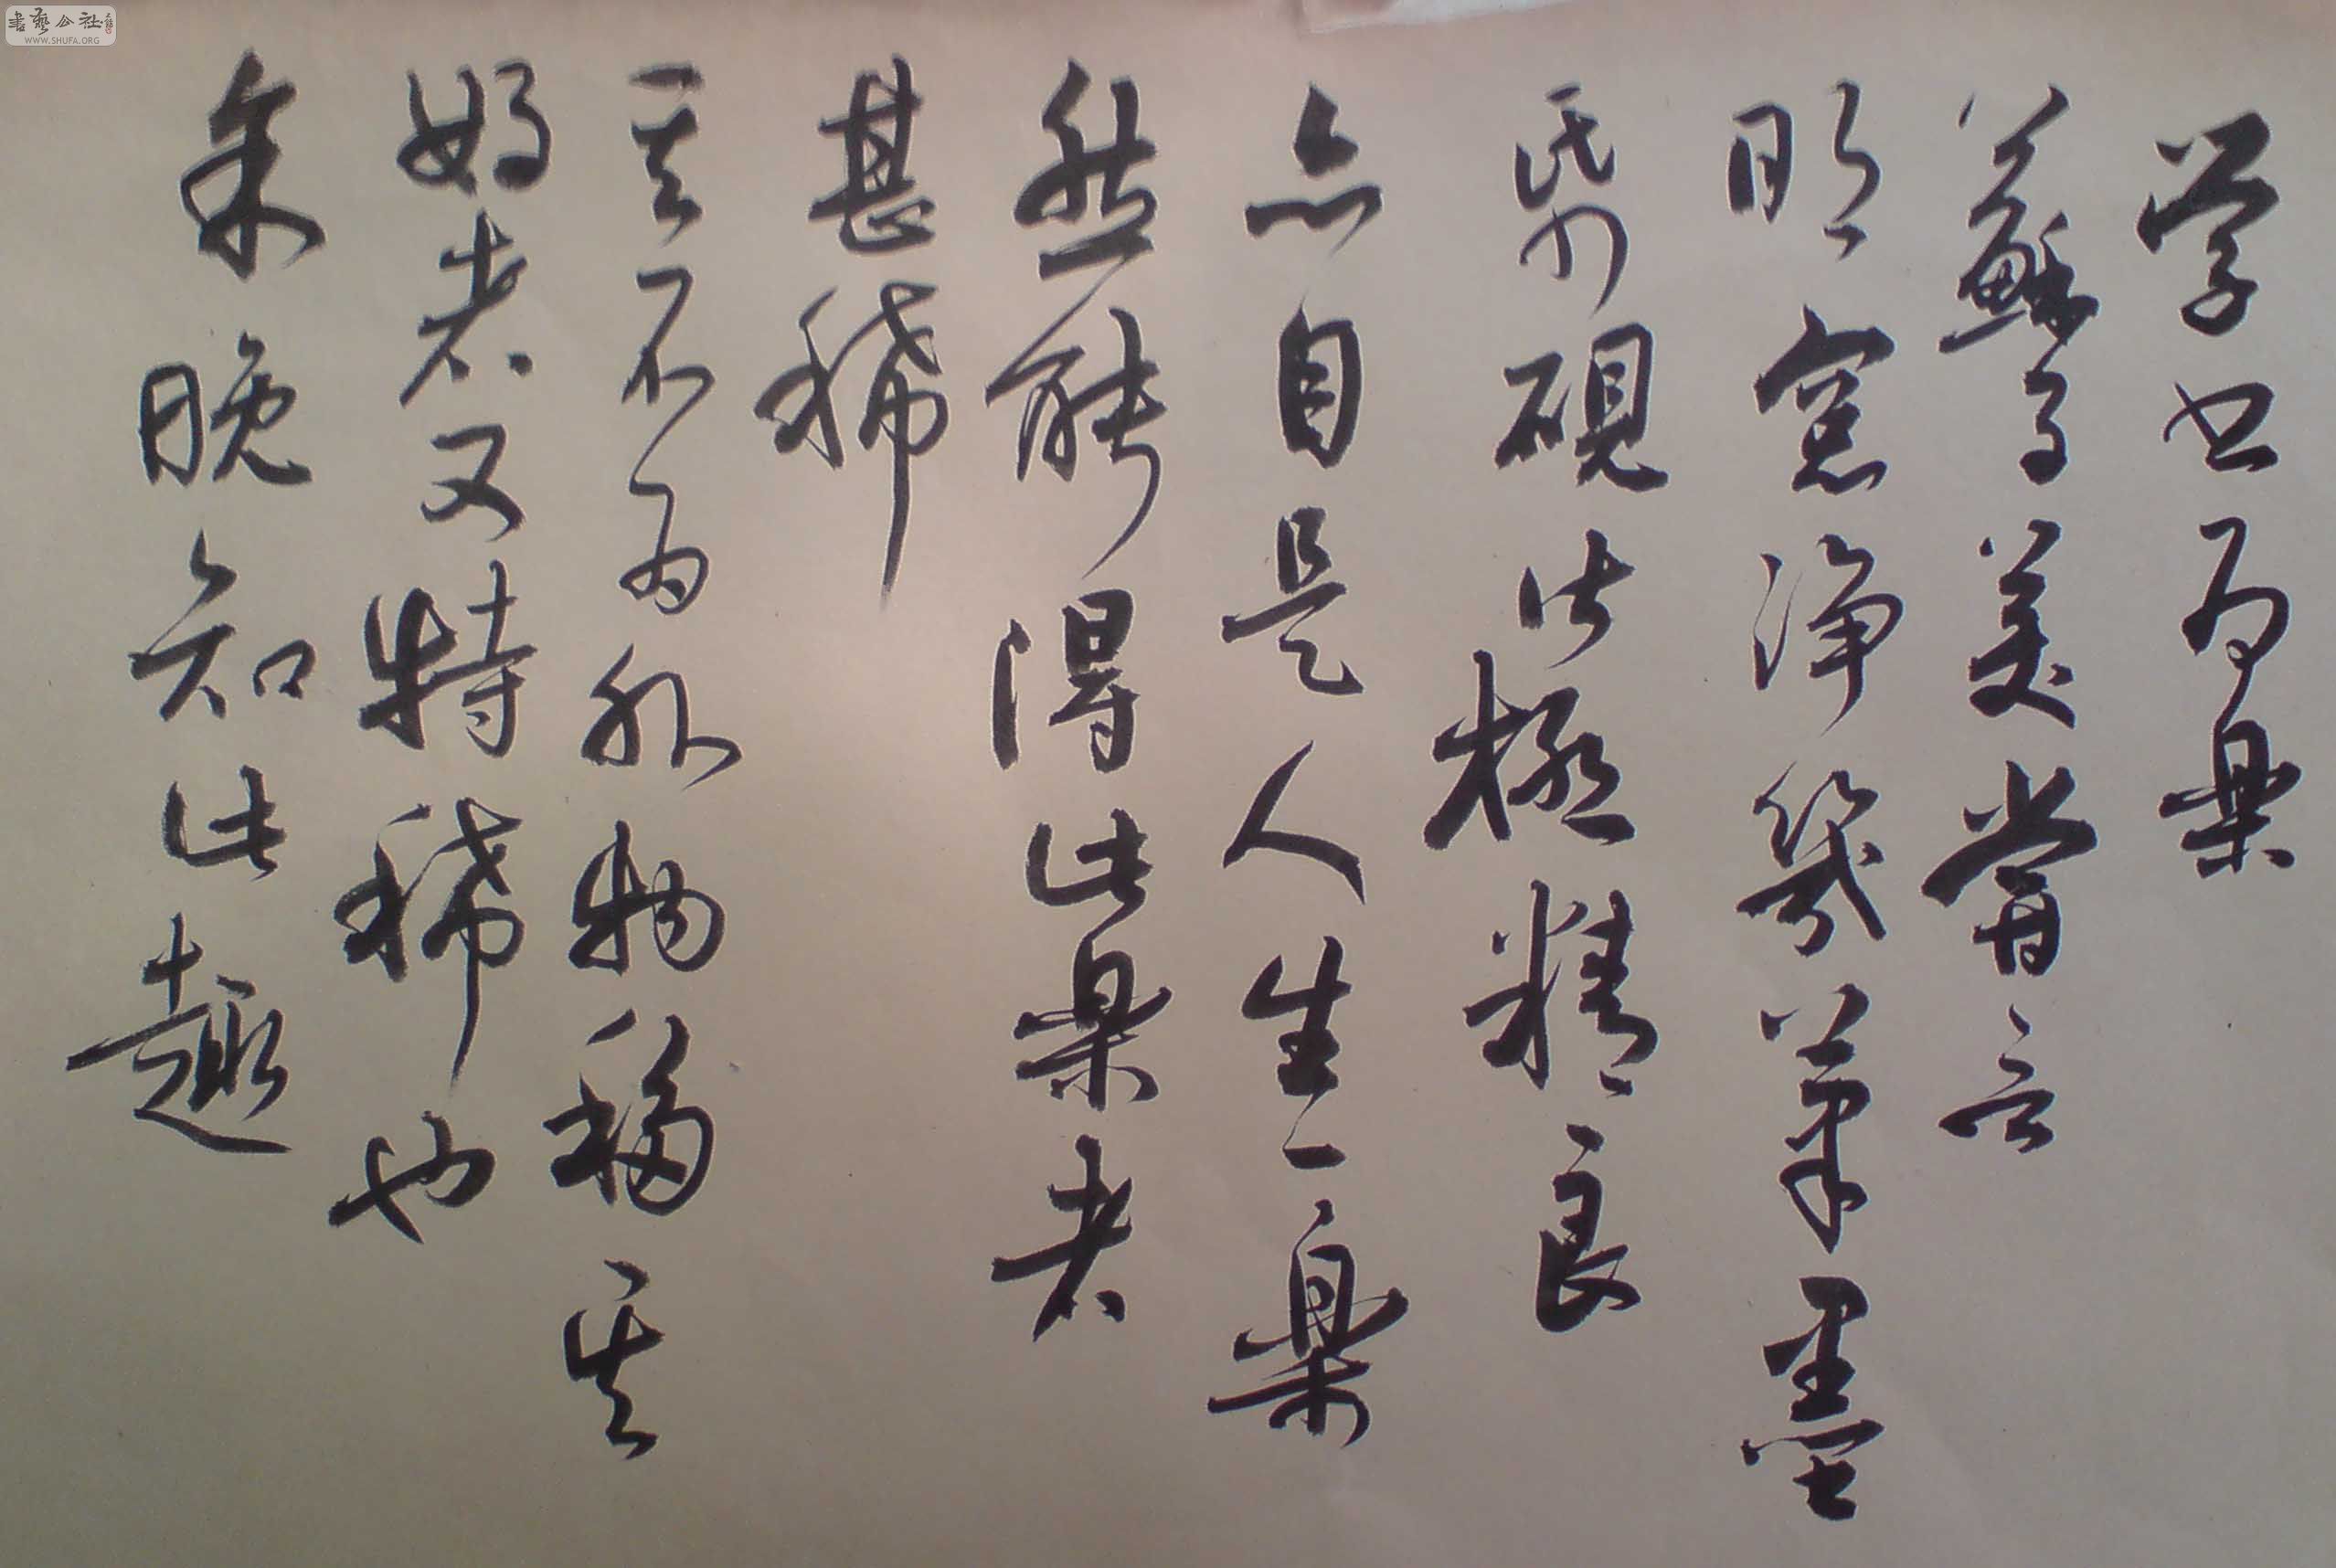 学书为樂
蘇子美嘗言
明窓淨幾筆墨
紙硯皆極精良
亦自是人生一樂
然能得此樂者
甚稀
其不为外物移其
好者又特稀也
余晚知此趣
書藝公社
WWW.SHUFA.ORG